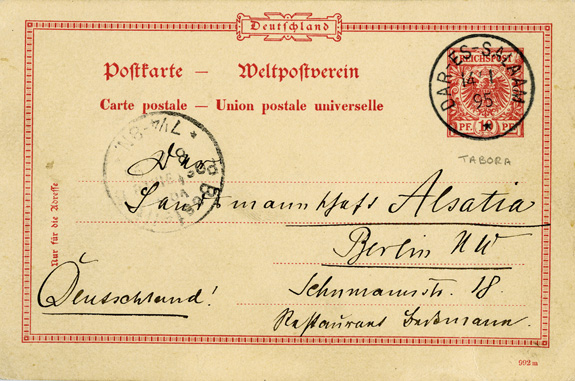 Deutschland
Postkarte — Weltpostverein
Carte postale — Union postale universelle
REICHSPOST
PF. 10 PF.
DAR-ES-SALAAM
14 1
95
*
TABORA
Landsmannschaft Alsatia
Berlin NW
Deutschland!
Schumannstr. 18.
Restaurant Beckmann.
Nur für die Adresse
992 m